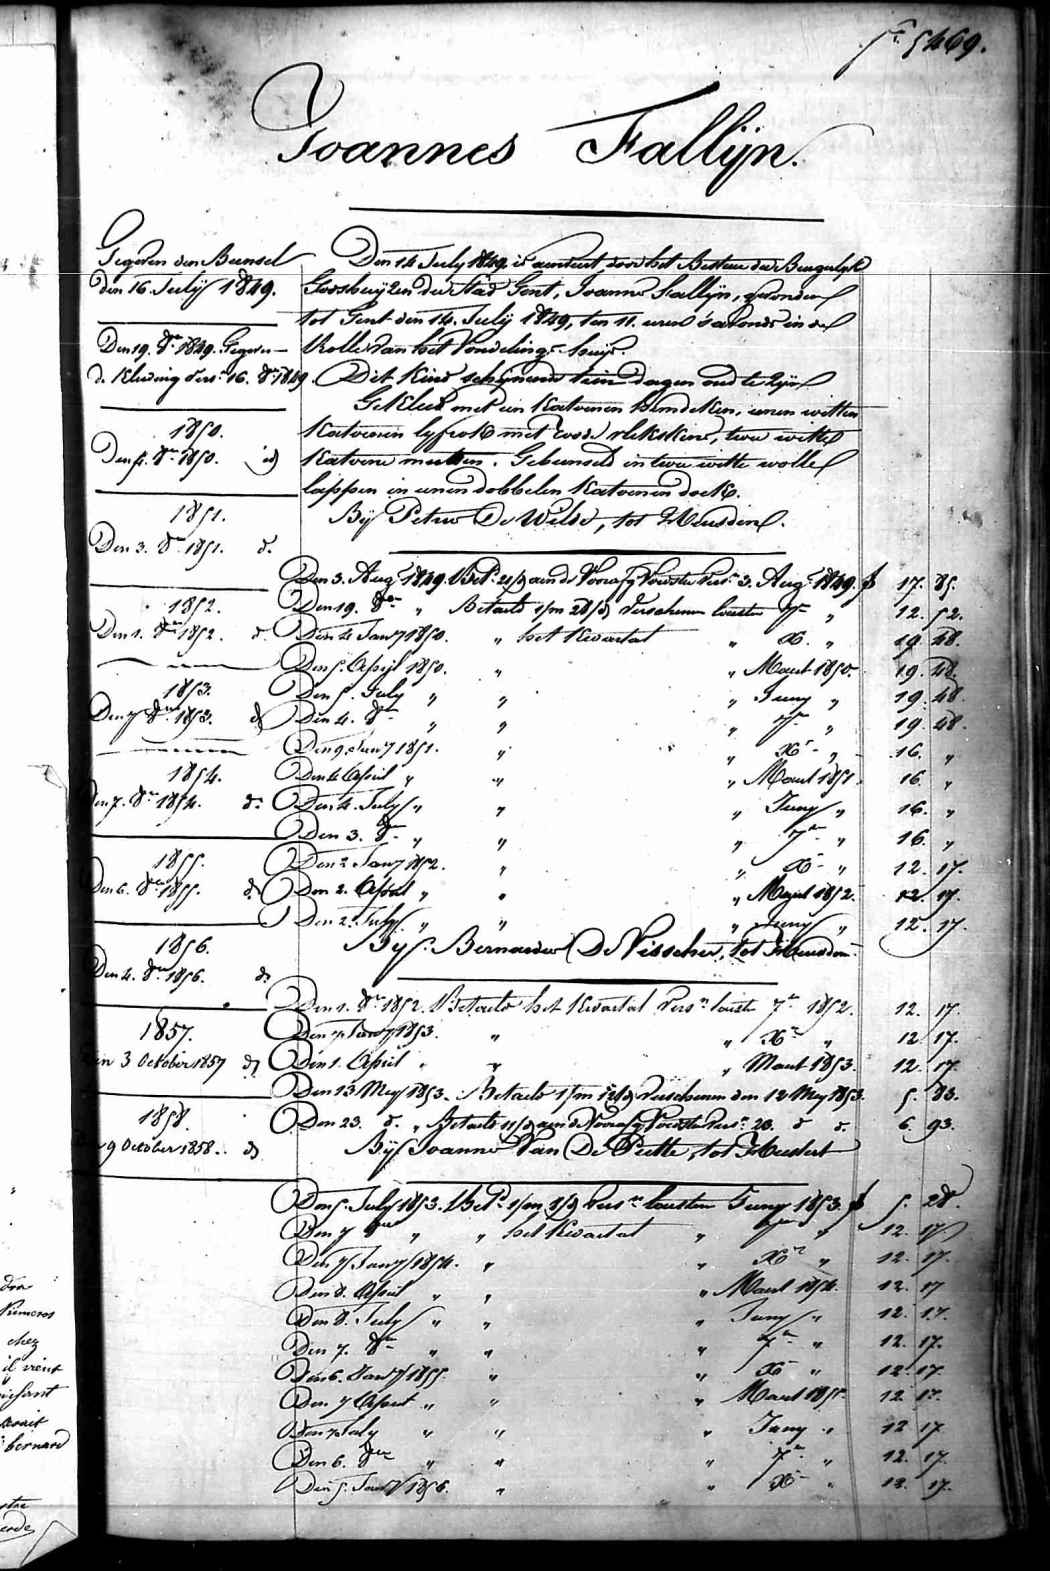 fo. 5469.
Joannes Fallijn.
Gegeven den Bunsel
den 16. Julij 1849.
Den 19. 8er 1849. Gegeven
d. Kleding vers. 16. 8er 1849.
1850.
Den 4. 8er 1850. id
1851.
Den 3. 8er 1851. d.
1852.
Den 1. 8er 1852. d.
1853.
Den 7 8er 1853. d
1854.
Den 7. 8er 1854. d.
1855.
Den 6. 8er 1855. d
1856.
Den 4. 8er 1856. d.
1857.
Den 3 October 1857 d
1858.
9 October 1858. d
Den 14 July 1849. is aenveert door het Bestuur der Burgerlyke
Godshuyzen der Stad Gent, Joannes Fallijn, gevonden
tot Gent den 14. Julij 1849, ten 11. uren s'avonds in de
Rolle van het Vondelings huys.
Dit Kind schynende tien dagen oud te zyn
Gekleed met een Katoenen hemdeken, eenen witten
Katoenen lyfrok met roode vlekskens, twee witte
Katoene mutsen. Gebunseld in twee witte wolle
lappen in eenen dobbelen Katoenen doek.
Bij Petrus De Wilde, tot Heusden.
Den 3. Aug. 1849. Bet. 21/d aen de Voorsz Voedster vers. 3. Aug. 1849. f 17. 85.
Den 19. 8er " Betaeld 1/m 28/d verschenen lesten 7er " 12. 52.
Den 4 Jany 1850. " het Kwartael " Xr. " 19. 48.
Den 5. April 1850. " " Maert 1850. 19. 48.
Den 5. July " " " Juny " 19. 48.
Den 4. 8er " " " 7er " 19. 48.
Den 9. Jany 1851. " " Xr " 16. "
Den 4 April " " " Maert 1851. 16. "
Den 4. July " " " Juny " 16. "
Den 3. 8er " " " 7er " 16. "
Den 2 Jany 1852. " " Xr " 12. 17.
Den 2. April " " " Maert 1852. 12. 17.
Den 2. July " " " Juny " 12. 17.
Bij Bernardus De Visscher, tot Heusden.
Den 1. 8er 1852. Betaeld het Kwartael vers. leste 7er 1852. 12. 17.
Den 7 Jany 1853. " " Xr " 12. 17.
Den 1. April " " " Maert 1853. 12. 17.
Den 13 Mey 1853. Betaeld 1/m 12/d verschenen den 12 Mey 1853. 5. 83.
Den 23. d. " Betaeld 11/d aen de Voorsz Voedster vers. 23. d d. 6 93.
Bij Joannes Van De Putte, tot Heusden
Den 5. July 1853. Bet. 1/m 8/d vers. lesten Juny 1853. f 5. 28.
Den 7 8er " " het Kwartael " 7er " 12. 17
Den 7 Jany 1854. " " Xr " 12. 17.
Den 8. April " " " Maert 1854. 12. 17
Den 8. July " " " Juny " 12. 17.
Den 7. 8er " " " 7er " 12. 17.
Den 6. Jany 1855. " " Xr " 12. 17.
Den 7 April " " " Maert 1855. 12. 17.
Den 7 July " " " Juny " 12 17
Den 6. 8er " " " 7er " 12. 17.
Den 5. Jany 1856. " " Xr " 12. 17.
Numeros
chez
il vient
bernard